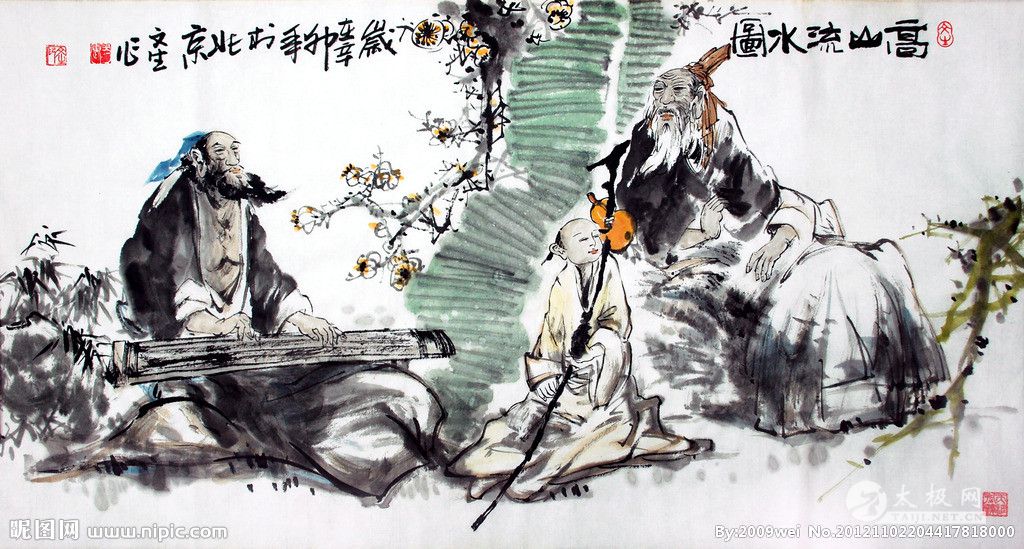 高山流水圖
歲辛卯年於北京文生作
太极网
TAIJI.NET.CN
昵图网 www.nipic.com
By:2009wei No.20121102204417818000